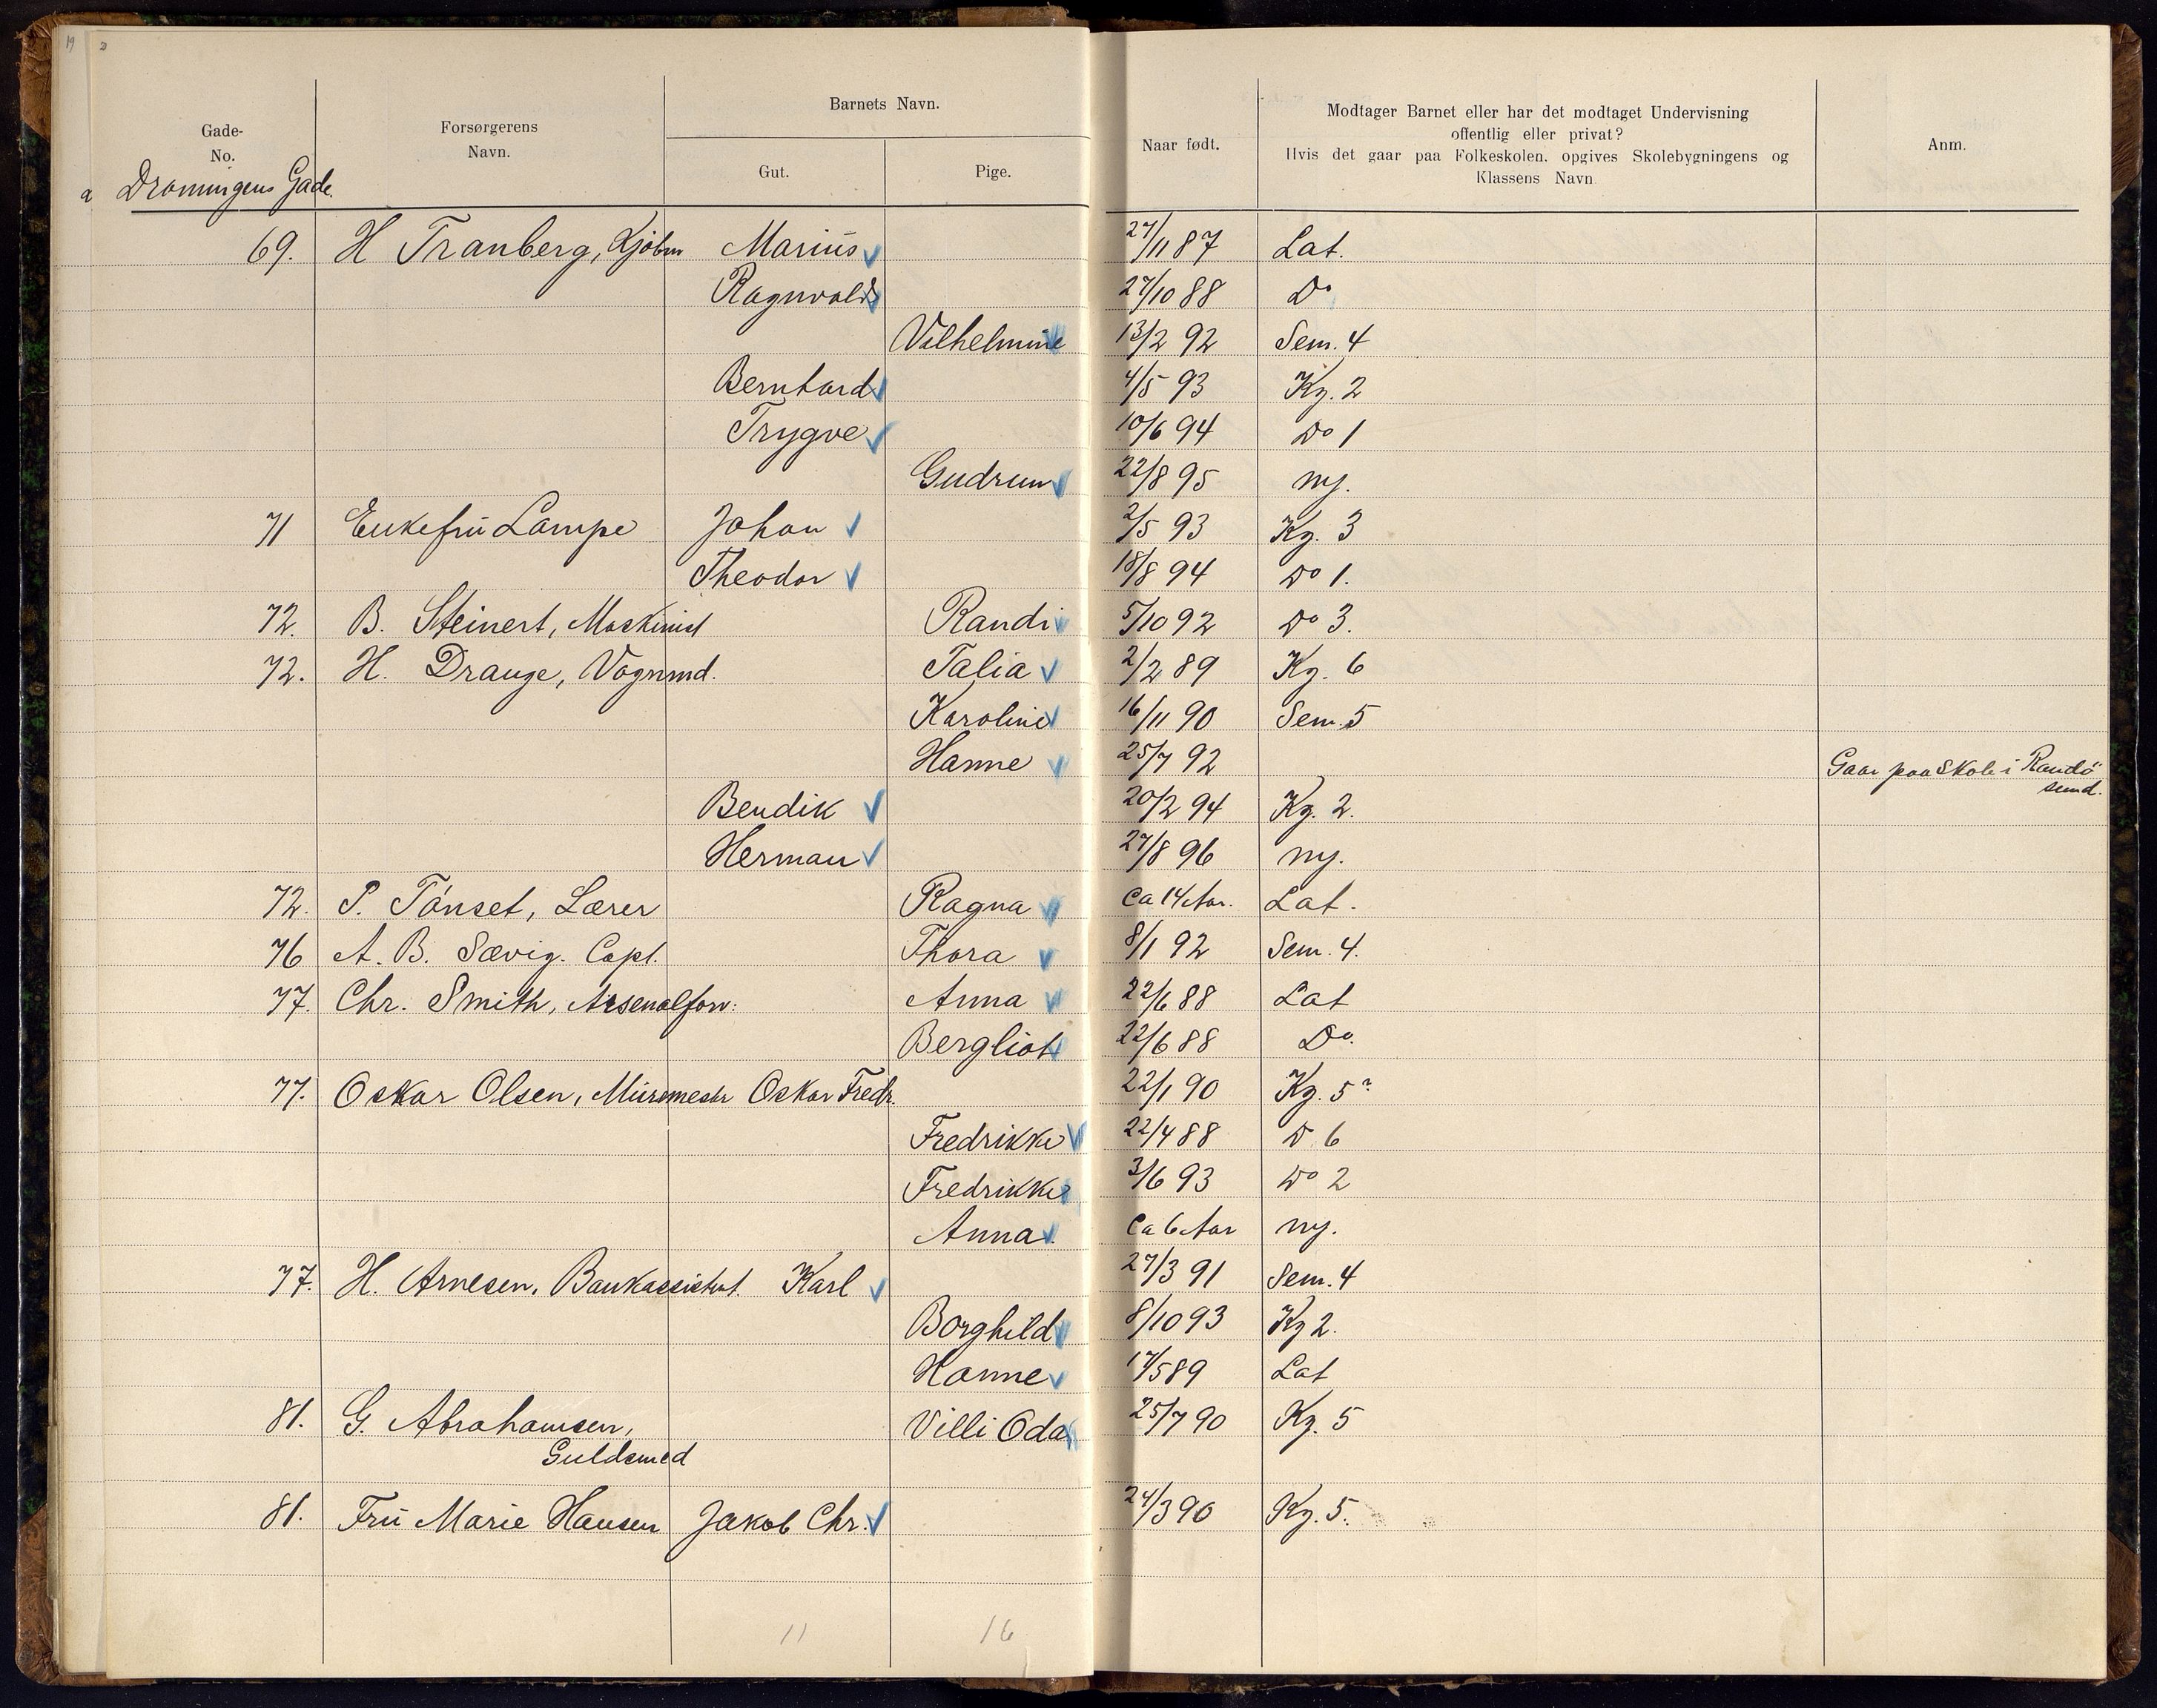 19 20
Gade-
No.
Forsørgerens
Navn.
Barnets Navn.
Gut.
Pige.
Naar født.
Modtager Barnet eller har det modtaget Undervisning
offentlig eller privat?
Hvis det gaar paa Folkeskolen. opgives Skolebygningens og
Klassens Navn
Anm.
a Dronningens Gade.
69. H Tranberg, Kjöbm Marius 27/11 87 Lat.
Ragnvald 27/10 88 Do
Vilhelmine 13/2 92 Sem. 4
Bernhard 4/5 93 Kg. 2
Trygve 10/6 94 Do 1
Gudrun 22/8 95 ny.
71 Enkefru Lampe Johan 2/5 93 Kg. 3
Theodor 18/8 94 Do 1.
72. B. Steinert, Maskinist Randi 5/10 92 Do 3.
72. H. Drange, Vognmd. Talia 2/2 89 Kg. 6
Karoline 16/11 90 Sem. 5
Hanne 25/7 92 Gaar paa Skole i Randö
sund.
Bendik 20/2 94 Kg. 2.
Herman 27/8 96 ny.
72. P. Tönset, Lærer Ragna Ca 14 Aar. Lat.
76 A. B. Sævig. Capt. Thora 8/1 92 Sem. 4.
77. Chr. Smith, Arsenalforv: Anna 22/6 88 Lat
Bergliot 22/6 88 Do.
77. Oskar Olsen, Murmestr Oskar Fredr. 22/1 90 Kg. 5?
Fredrikke 22/4 88 D 6
Fredrikke 3/6 93 Do 2
Anna Ca 6 Aar ny.
77. H. Arnesen, Bankassistent. Karl 27/3 91 Sem. 4
Borghild 8/10 93 Kg 2.
Hanne 17/5 89 Lat
81. G. Abrahamsen, Villi Oda 25/7 90 Kg. 5
Guldsmed
81. Fru Marie Hansen Jakob Chr. 24/3 90 Kg. 5.
11 16